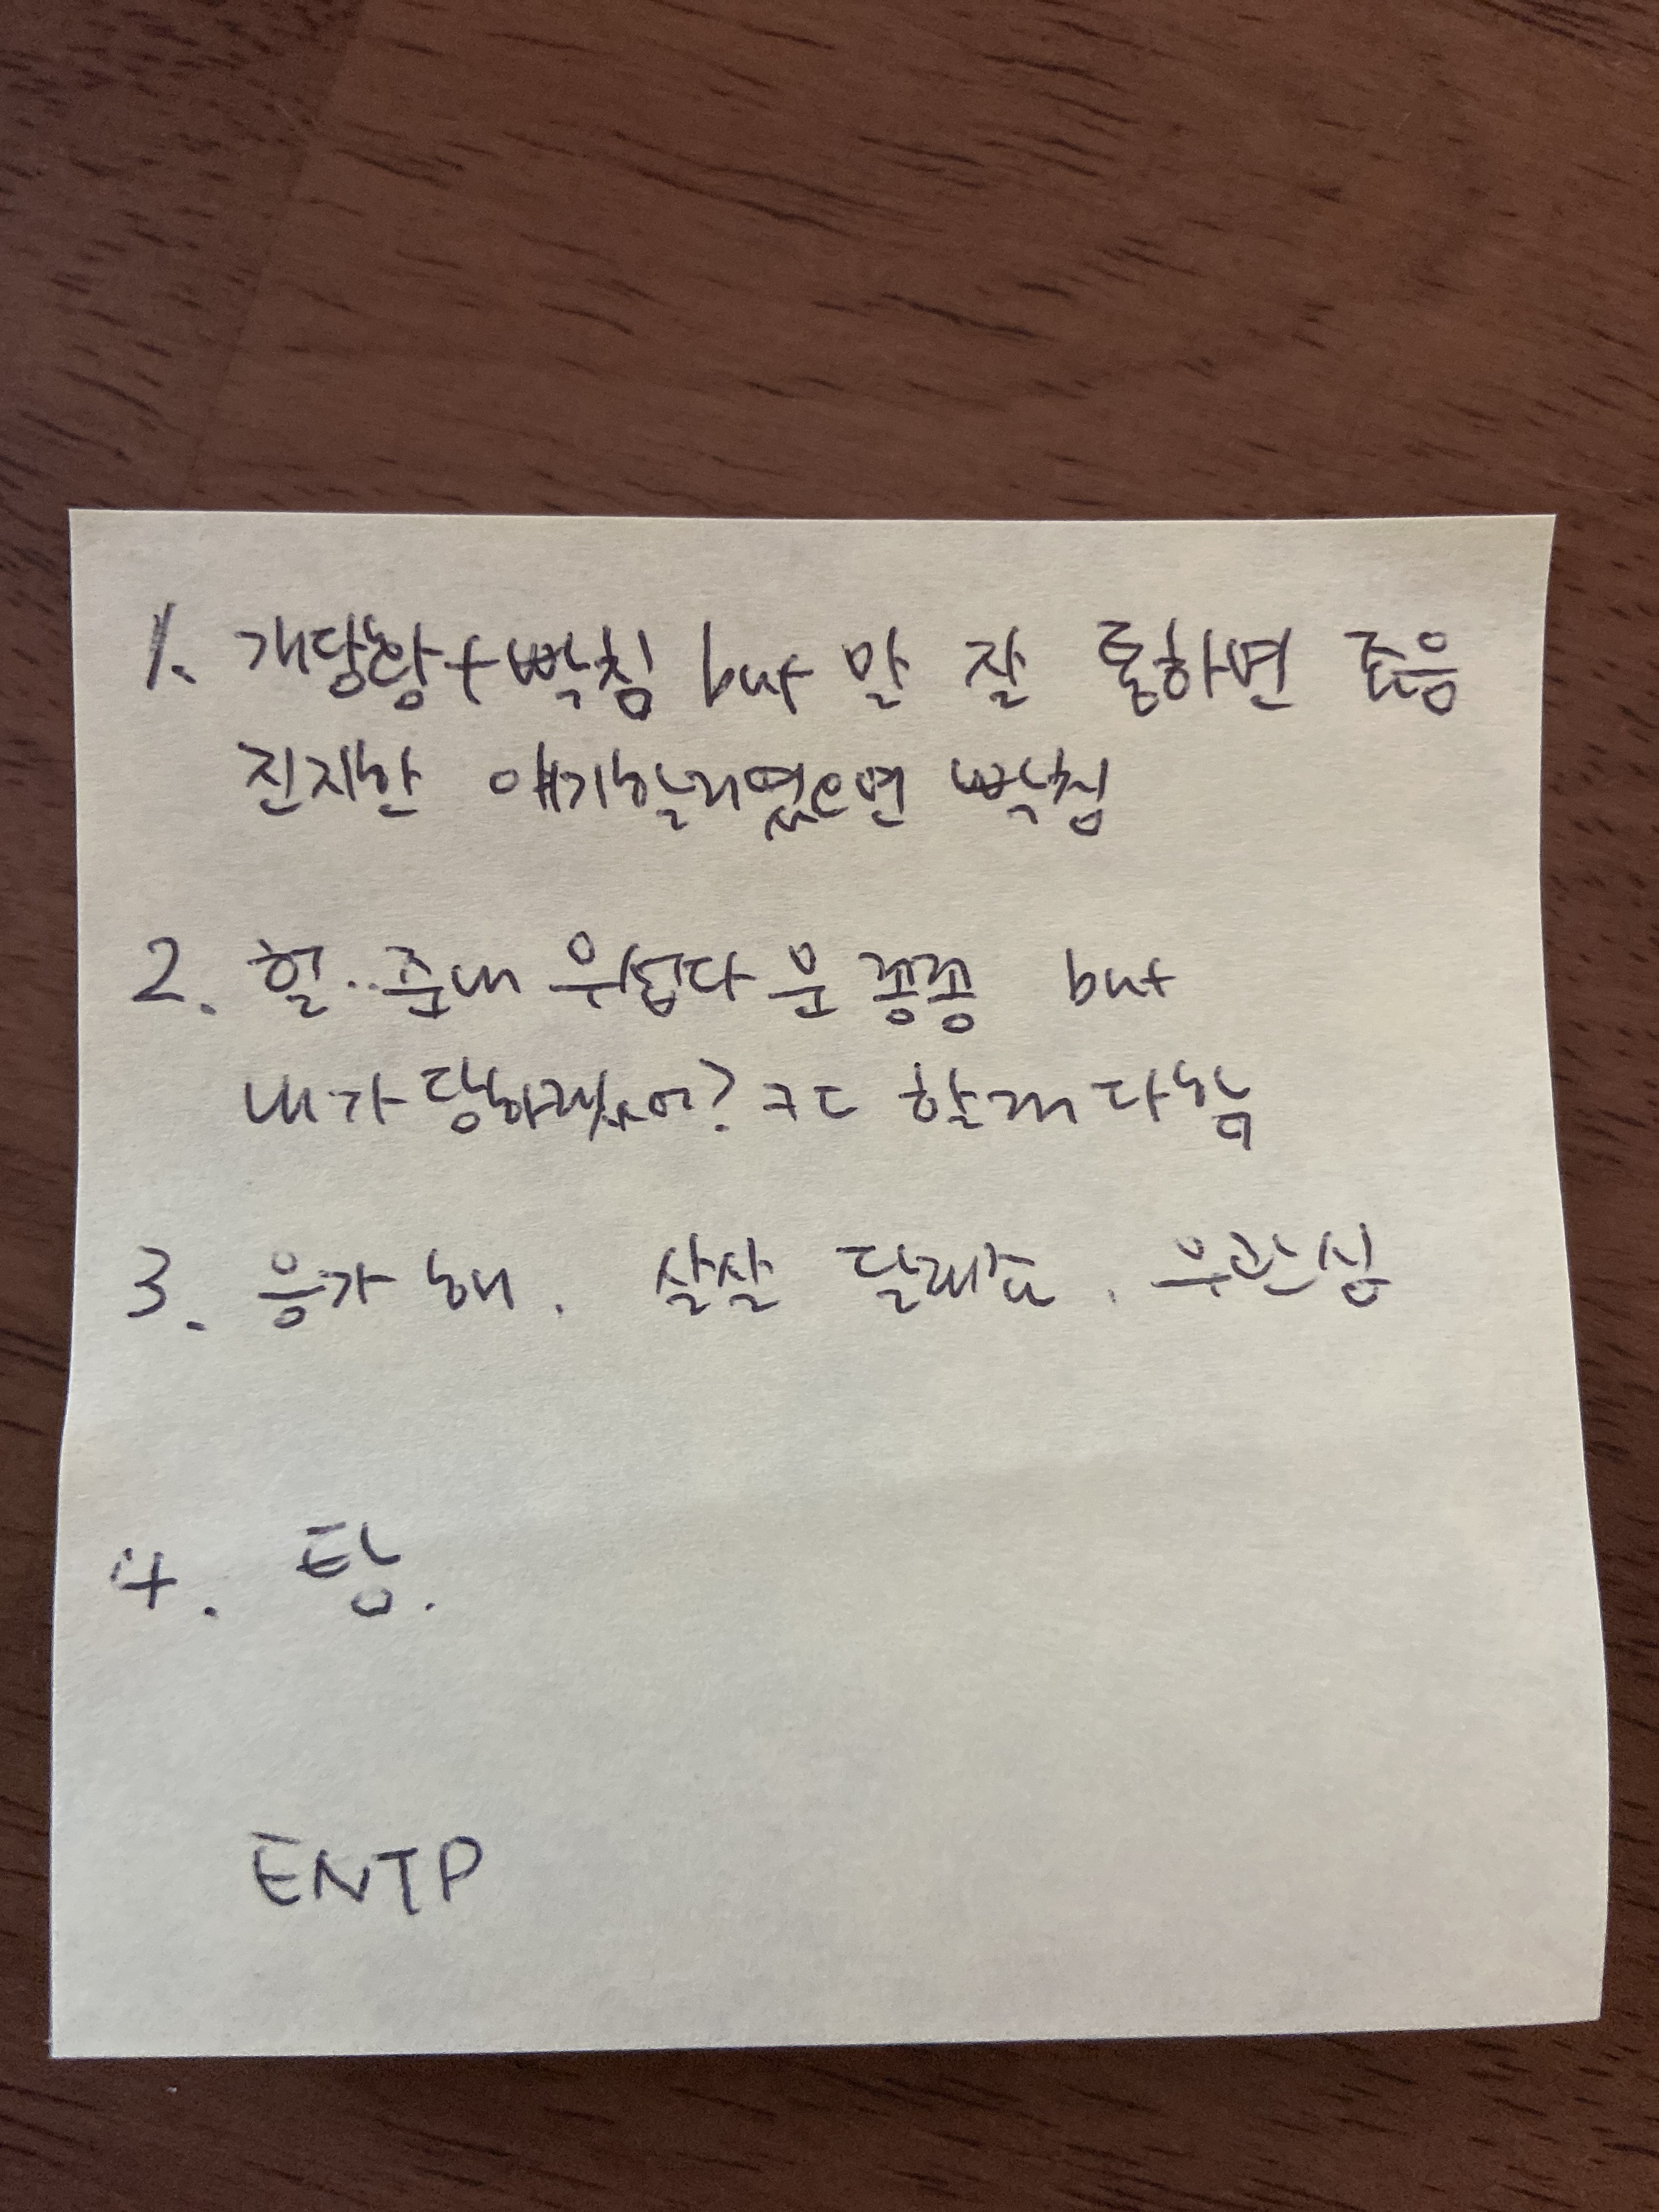 1. 개당황+빡침 but 말 잘 통하면 좋음
진지한 얘기할려했으면 빡침
2. 헐.. 존내 위험다 운 쫑쫑 but
내가 당하겠어? ㅋㄷ 할 내 다
3. 응가 해. 살살 달래죠. 무관심
4. 팅.
ENTP